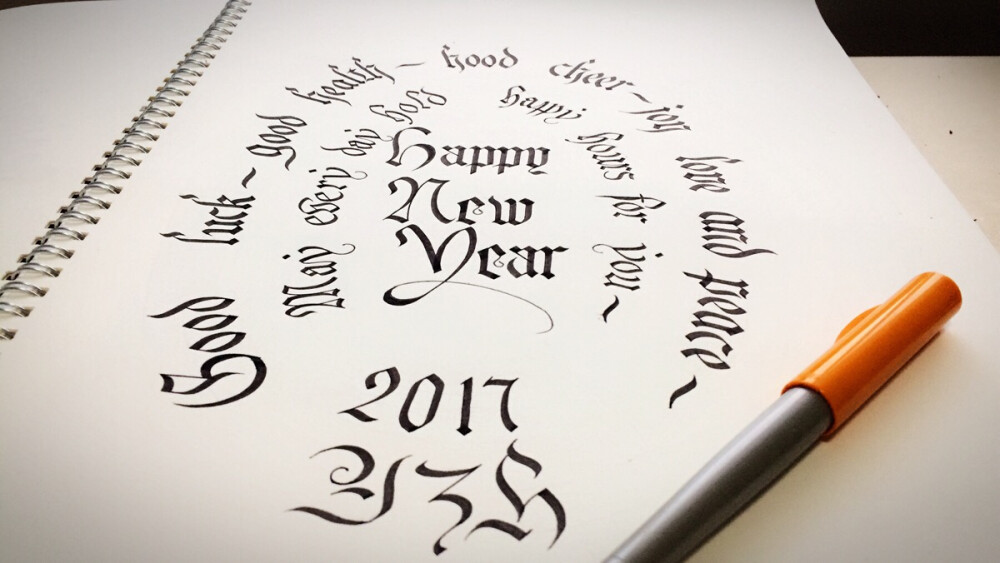 Good luck ~ good health – Good cheer ~ joy love and peace ~
May every day hold happy hours for you ~
Happy
New
Year
2017
YZH